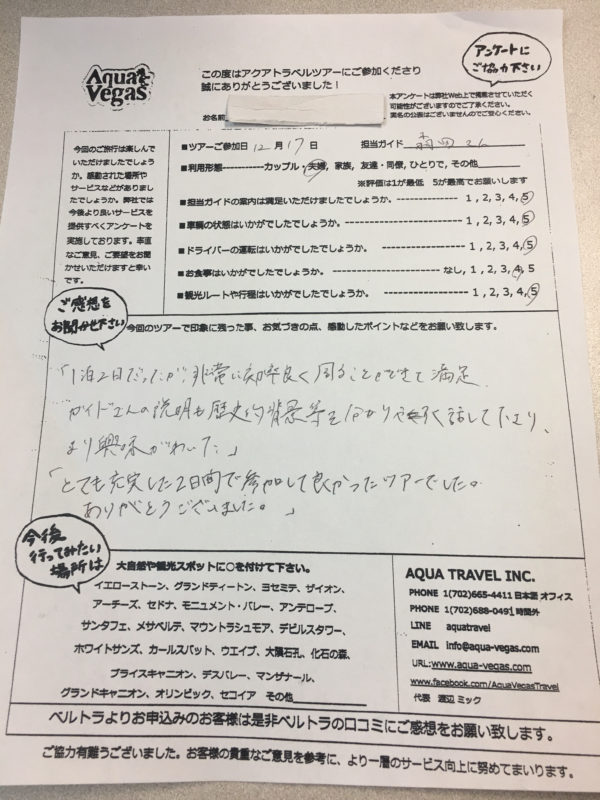 Aqua Vegas
アンケートに
ご協力下さい
この度はアクアトラベルツアーにご参加くださり
誠にありがとうございました！
お名前
本アンケートは弊社Web上で掲載させていただく
可能性がございますのでご了承ください。
実名の公表はございませんのでご安心ください。
今回のご旅行は楽しんで
いただけましたでしょう
か。感動された場所や
サービスなどがありまし
たでしょうか。弊社では
今後より良いサービスを
提供すべくアンケートを
実施しております。率直
なご意見、ご要望をお聞
かせいただけますと幸い
です。
■ツアーご参加日 12月 17日 担当ガイド 森田さん
■利用形態-----------カップル・夫婦, 家族, 友達・同僚, ひとりで, その他
※評価は1が最低 5が最高でお願いします
■担当ガイドの案内は満足いただけましたでしょうか。 ---------------- 1 , 2, 3, 4, 5
■車輌の状態はいかがでしたでしょうか。 ---------------- 1 , 2, 3, 4, 5
■ドライバーの運転はいかがでしたでしょうか。 ---------------- 1 , 2, 3, 4, 5
■お食事はいかがでしたでしょうか。 ---------------- なし, 1, 2, 3, 4, 5
■観光ルートや行程はいかがでしたでしょうか。 ---------------- 1 , 2, 3, 4, 5
ご感想を
お聞かせ下さい
今回のツアーで印象に残った事、お気づきの点、感動したポイントなどをお願い致します。
「1泊2日だったが、非常に効率良く周ることができて満足
ガイドさんの説明も歴史的背景等を分かりやすく話して下さり、
より興味がわいた。」
「とても充実した2日間で参加して良かったツアーでした。
ありがとうございました。」
今後
行ってみたい
場所は
大自然や観光スポットに○を付けて下さい。
イエローストーン、グランドティートン、ヨセミテ、ザイオン、
アーチーズ、セドナ、モニュメント・バレー、アンテロープ、
サンタフェ、メサベルデ、マウントラシュモア、デビルスタワー、
ホワイトサンズ、カールスバット、ウエイブ、大隕石孔、化石の森、
ブライスキャニオン、デスバレー、マンザナール、
グランドキャニオン、オリンピック、セコイア その他
AQUA TRAVEL INC.
PHONE 1(702)665-4411 日本語 オフィス
PHONE 1(702)688-0491 時間外
LINE aquatravel
EMAIL info@aqua-vegas.com
URL:www.aqua-vegas.com
www.facebook.com/AquaVegasTravel
代表 渡辺 ミック
ベルトラよりお申込みのお客様は是非ベルトラの口コミにご感想をお願い致します。
ご協力有難うございました。お客様の貴重なご意見を参考に、より一層のサービス向上に努めてまいります。